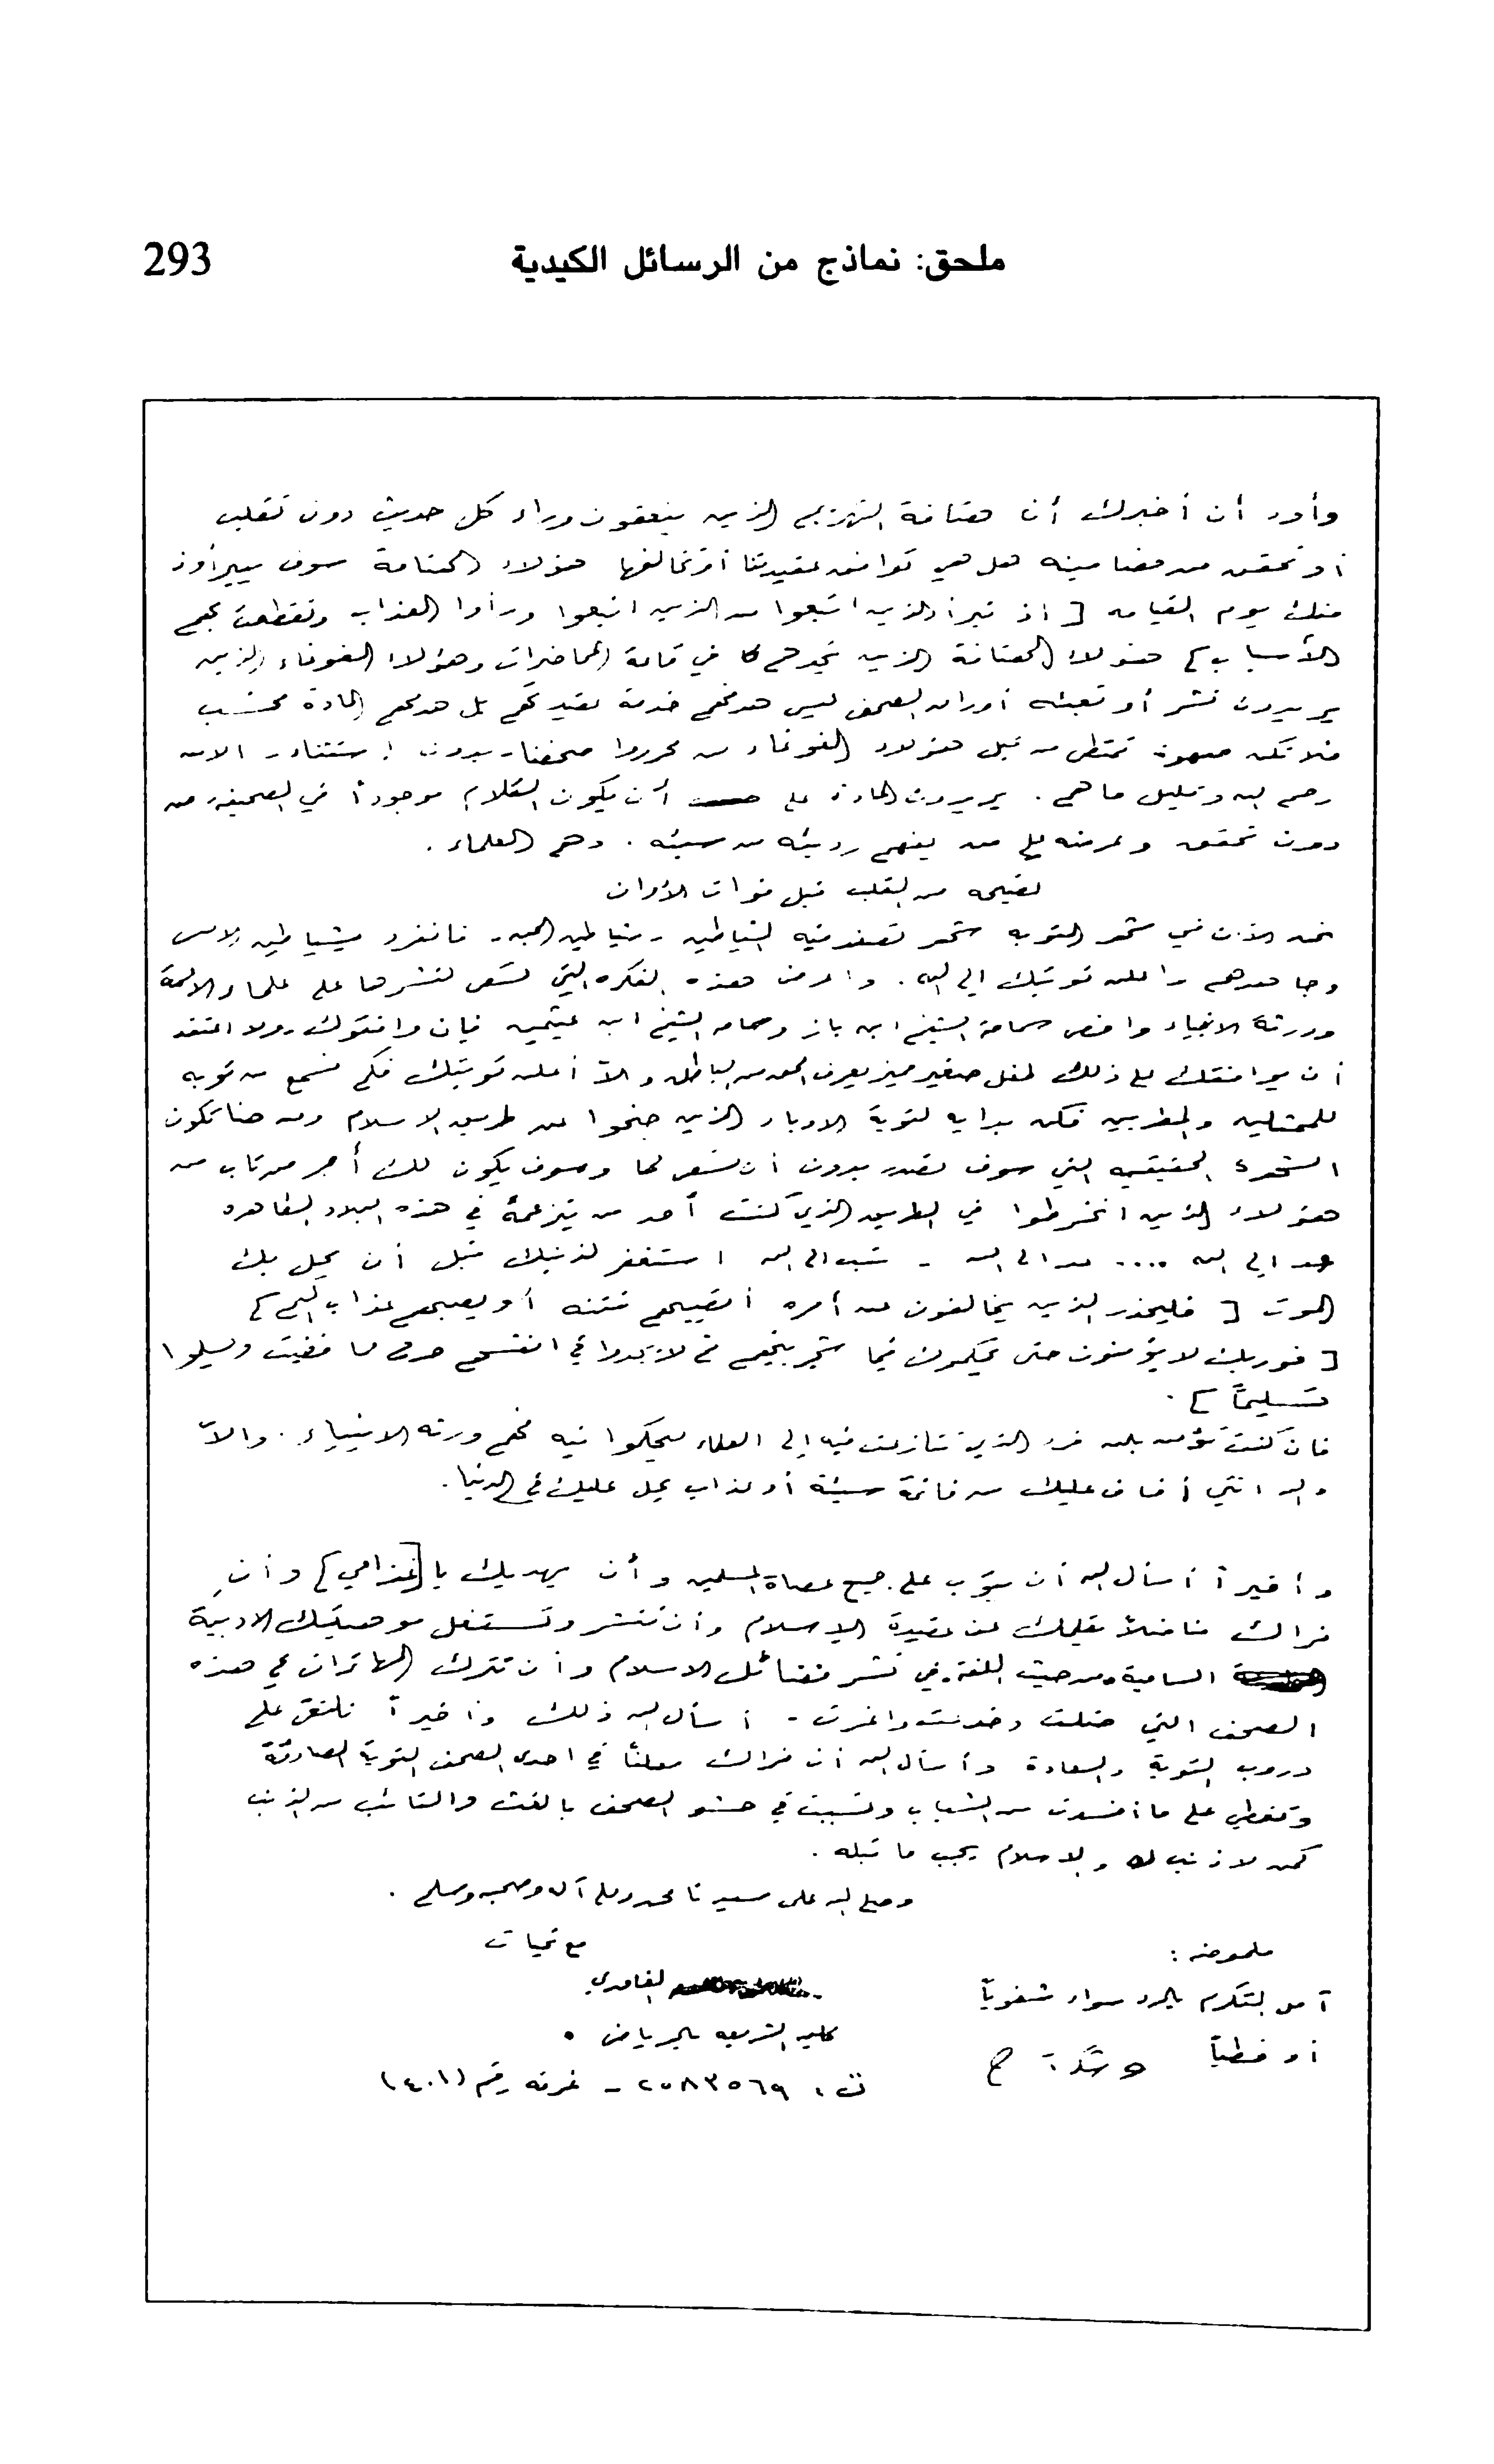 ملحق: نماذج من الرسائل الكيدية 293
وأود أن أخبرك أن هتافة الذين ينعقون وراء كل حديث دون تقليب
أو تحقق من مضامينه هل هي توافق عقيدتنا أو تخالفها هؤلاء سوف يتبرأون
منك يوم القيامه [ اذ تبرأ الذين اتبعوا من الذين اتبعوا ورأوا العذاب وتقطعت بهم
الأسباب ] هؤلاء الذين تجدهم في قاعة المحاضرات وهؤلاء الغوغاء الذين
يريدون نشر أو تعبئه أوراق الصحف ليس هدفهم خدمة عقيدتهم بل هدفهم المادة فحسب
فلا تكن صهوة تمتطى من قبل هؤلاء الغوغاء من محرروا صحفنا - بدون استثناء - الا من
رحم الله وقليل ما هم . يريدون المادة على أن يكون الكلام موجوداً في الصحيفة من
دون تحقق وعرضه على من يفهم رديئه من سيئه . وهم العلماء .
نصيحه من القلب قبل فوات الأوان
نحن الآن في شهر التوبه شهر تصفد فيه الشياطين - شياطين الجن - فانفرد بشياطين الإنس
وجاهدهم واعلن توبتك الى الله . واعرض هذه الفكره التي تسعى لنشرها على علماء الأمة
وورثة الانبياء واخص سماحة الشيخ ابن باز وسماحه الشيخ ابن عثيمين فإن وافقوك - ولا اعتقد
أن يوافقك على ذلك طفل صغير مميز يعرف الحق من الباطل - والا أعلن توبتك فكم نسمع من توبه
للممثلين والمطربين فكن بدايه لتوبة الادباء الذين جنحوا عن طريق الاسلام ومن هنا تكون
الشهرة الحقيقيه التي سوف تقدر بدون أن تسعى لها وسوف يكون لك أجر من تاب من
هؤلاء الذين انخرطوا في الطريق الذي كنت أحد من يتزعمه في هذه البلاد الطاهره
عد الى الله .... عد الى الله - تب الى الله استغفر لذنبك قبل أن يحل بك
الموت [ فليحذر الذين يخالفون عن أمره أن تصيبهم فتنه أو يصيبهم عذاب أليم ]
[ فوربك لا يؤمنون حتى يحكموك فيما شجر بينهم ثم لا يجدوا في انفسهم حرج مما قضيت ويسلموا
تسليماً ] .
فان كنت تؤمن بالله فرد الذي تنازعت فيه إلى العلماء ليحكموا فيه فهم ورثه الانبياء . والاّ
والله انني أخاف عليك من خاتمة سيئة أو عذاب يحل عليك في الدنيا .
وأخيراً أسأل الله أن يتوب على جميع عصاة المسلمين وأن يهديك يا [غذامي] وأن
نراك مناضلاً بقلمك عن عقيدة الإسلام وأن تنشر وتستغل موهبتك الادبية
السامية من حيث اللغة في نشر فضائل الاسلام وأن تترك المهاترات في هذه
الصحف التي ضللت وخدعت واغرت - أسأل الله ذلك وأخيراً نلتقي على
دروب التوبة والسعادة وأسأل الله أن نراك معلناً في احدى الصحف التوبة الصادقة
وتغطي على ما أفسدت من الشباب وتسببت في حشو الصحف بالغث والتائب من الذنب
كمن لا ذنب له والإسلام يجب ما قبله .
وصلى الله على سيدنا محمد وعلى آله وصحبه وسلم .
مع تحيات
الغامدي
كليه الشريعه بالرياض .
ت : ٢٥٨٣٥٦٩ - غرفه رقم (٤٠١)
ملحوظه :
آمل التكرم بالرد سواء شفوياً
أو خطياً وشكراً